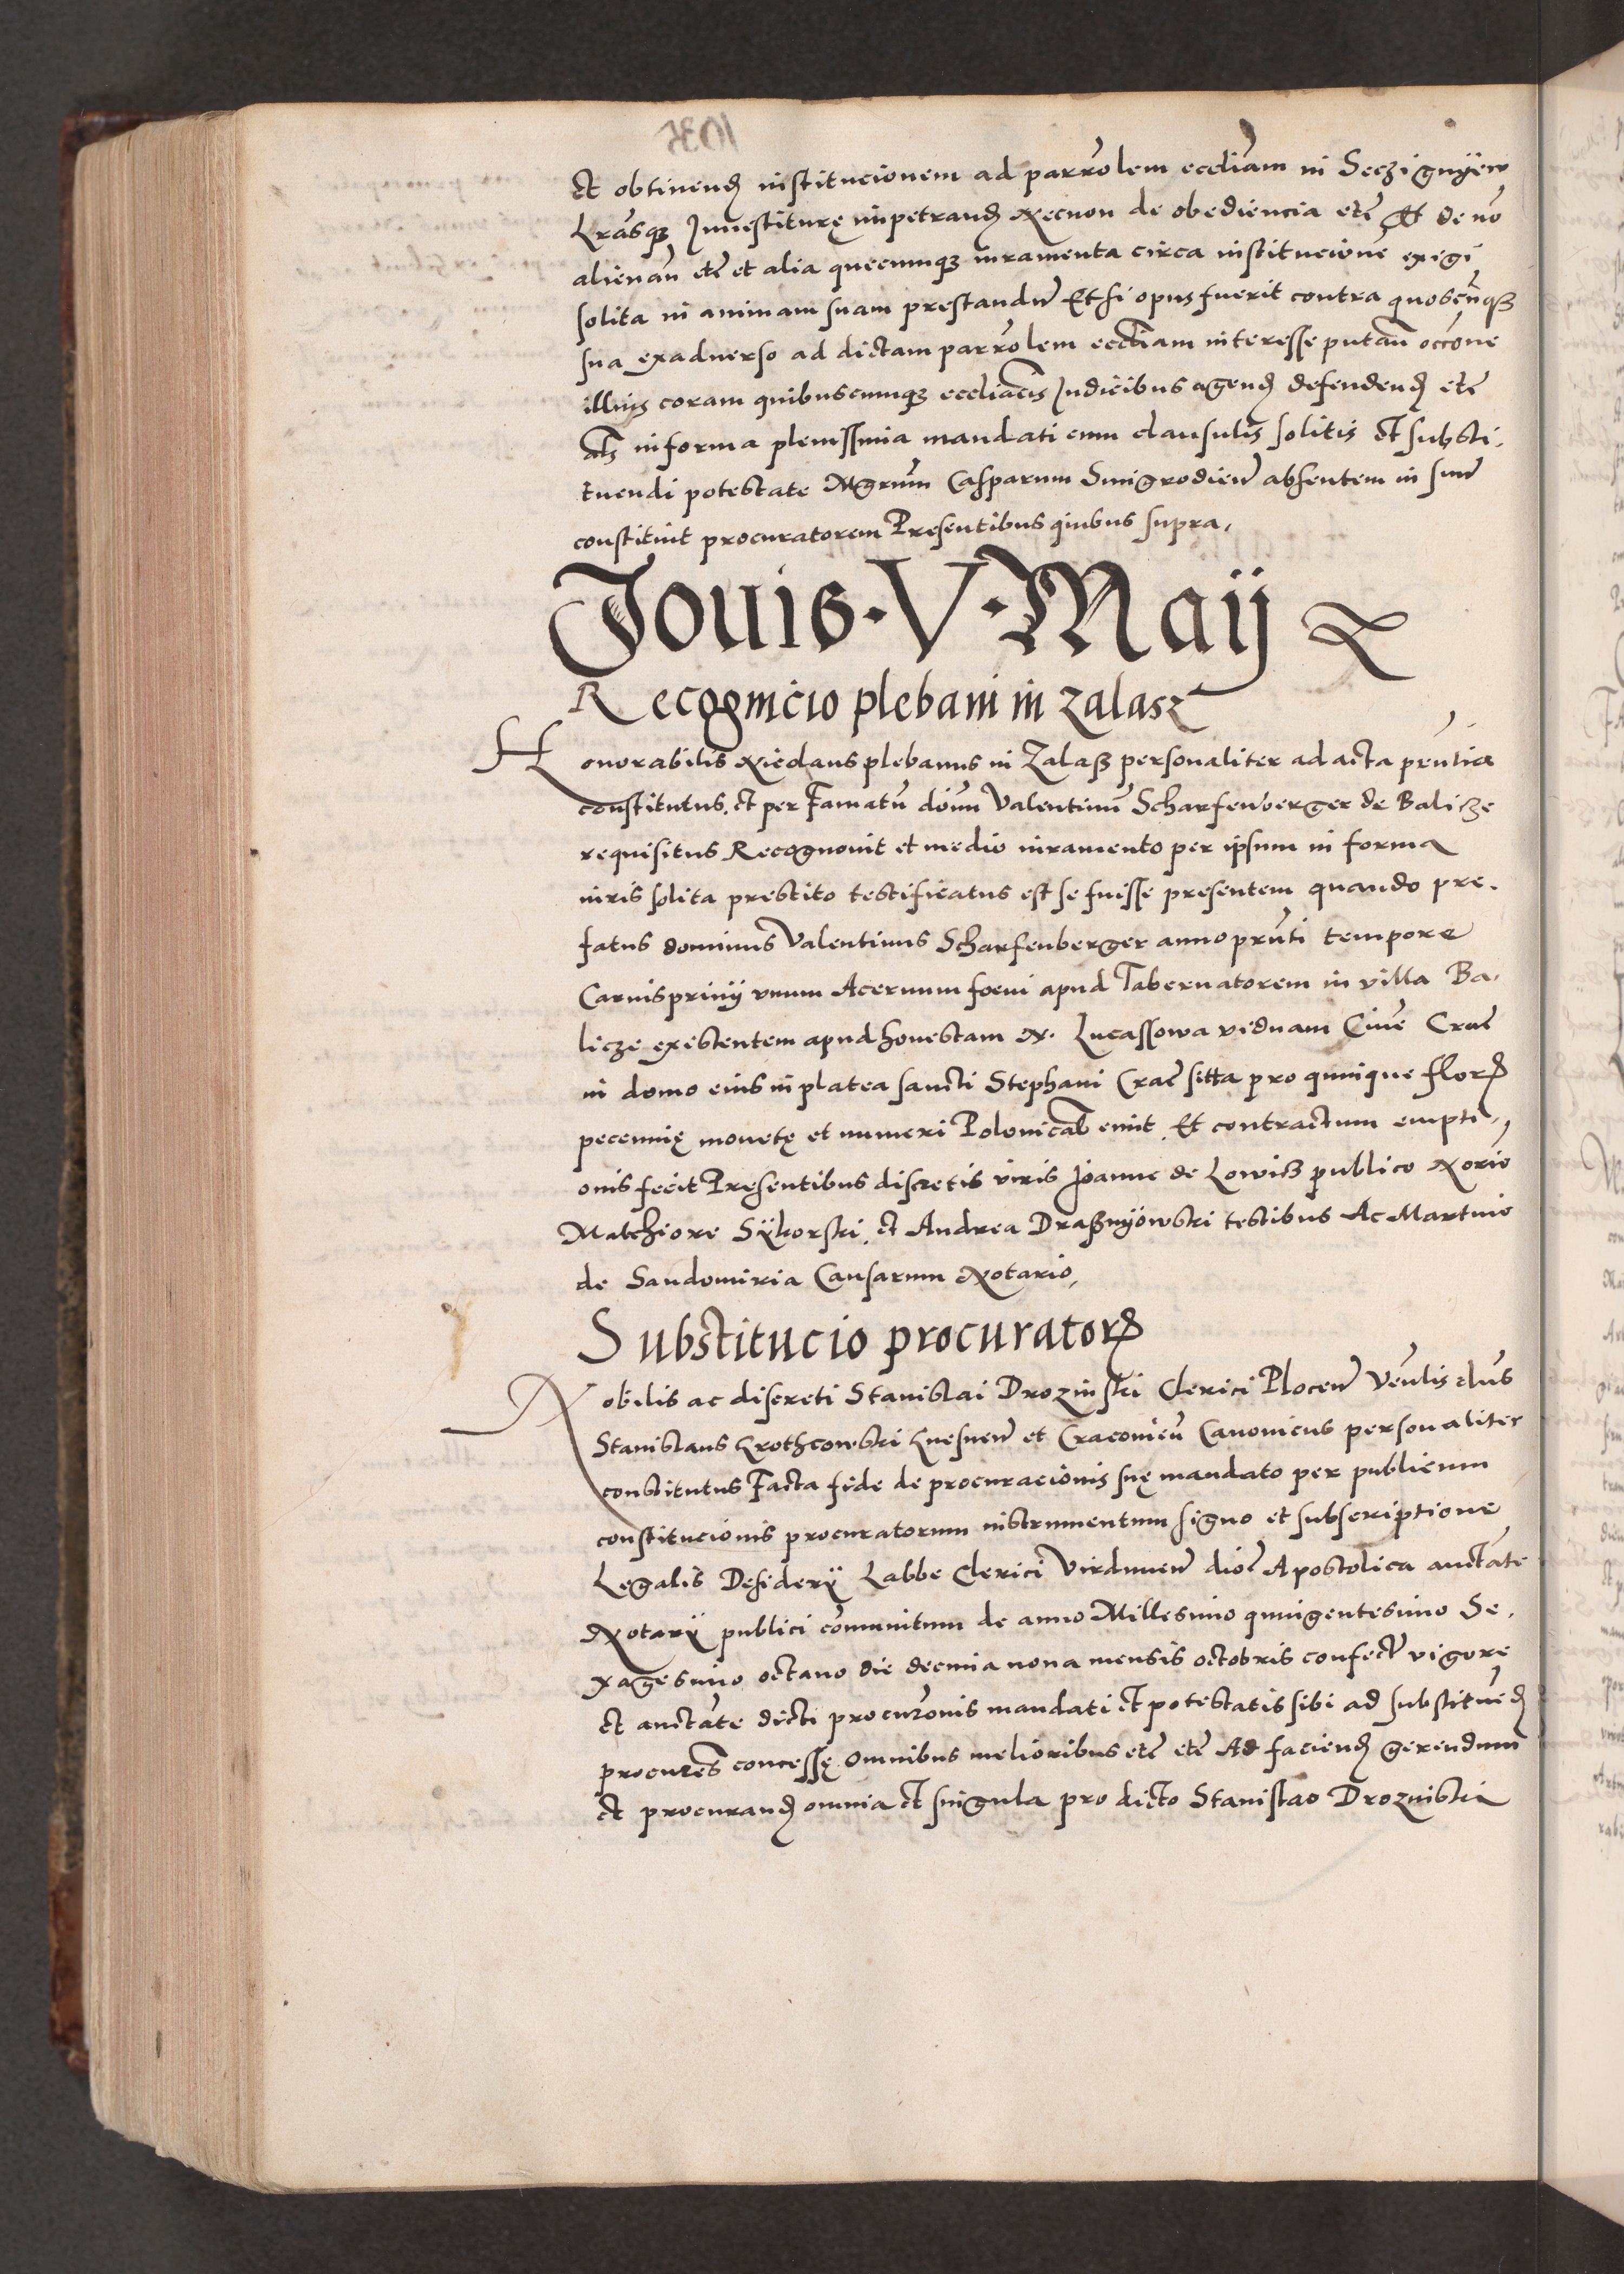 et obtinend institucionem ad parrolem eccliam in Secziguÿew
Lrasq Inuestiturę impetrand Necnon de obediencia etc Et de no
alienan etc et alia quecumq iuramenta circa institucione exigi
solita in animam suam prestandu Et si opus fuerit contra quoscunq
sua exaduerso ad dictam parrolem eccliam interesse putan occone
illius coram quibuscumq eccliacis Iudicibus agend defendend etc
als in forma plenissima mandati cum clausulis solitis et substi,
tuendi potestate Mgrum Casparum Smigrodien absentem in suu
constituit procuratorem Presentibus quibus supra,
Iouis · V · Maij
Recognicio plebani in zalasz
Honorabilis Nicolaus plebanus in Zalasz personaliter ad acta prntia
constitutus. et per Famatu dom Valentinu Scharfenberger de Balicze
requisitus Recognouit et medio iuramento per ipsum in forma
iuris solita prestito testificatus est se fuisse presentem quando pre.
fatus dominus Valentinus Scharfenberger anno prnti tempore
Carnispriuij vnum Aceruum foeni apud Tabernatorem in villa Ba.
licze existentem apud honestam N. Lucassowa viduam Ciue Crac
in domo eius in platea sancti Stephani Crac sitta pro quinque flor
pecunię monetę et numeri Polonical emit. Et contractum empti,
onis fecit Presentibus discretis viris Ioanne de Lowisz publico Norio
Malchiore Sÿkorski. et Andrea Draßnÿowski testibus Ac Martino
de Sandomiria Causarum Notario,
Substitucio procurator
Nobilis ac discreti Stanislai Drozinski Clerici Plocen Venlis dns
Stanislaus Krothcowski Gnesnen et Cracouien Canonicus personaliter
constitutus Facta fide de procuracionis suę mandato per publicum
constitucionis procuratorum instrumentum signo et subscriptione
Legalis Desiderÿ Labbe Clerici Virdunen dioc Apostolica auctate
Notarÿ publici comunitum de anno Millesimo quingentesimo Se,
xagesimo octauo die decima nona mensis octobris confect vigore
et auctate dicti procuronis mandati et potestatis sibi ad substitued
procures concessę omnibus melioribus etc etc Ad faciend gerendum
et procurand omnia et singula pro dicto Stanislao Drozinski